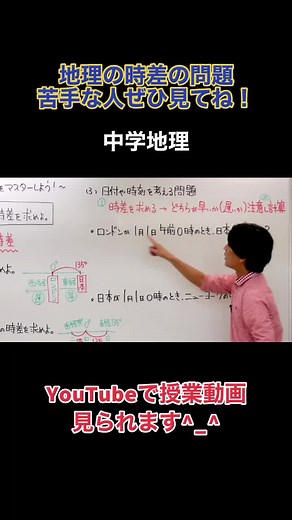 地理の時差の問題
苦手な人ぜひ見てね！
中学地理
マスターしよう！～
時差を求めよ。
時差
(3) 日付や時刻を考える問題
① 時差を求める → どちらが早いか(遅いか)注意し計算
・ロンドンが1月1日午前0時のとき、日本
・日本が1月1日0時のとき、ニューヨークの
135°
の時差を求めよ。
YouTubeで授業動画
見られます^_^